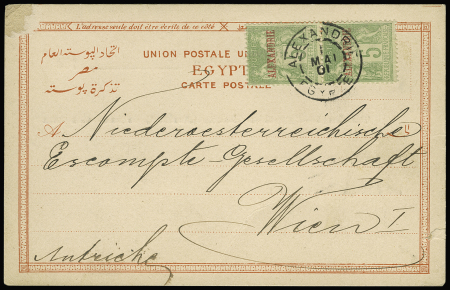 L'adresse seule doit être écrite de ce côté
اتحاد البوستة العام
مصر
تذكرة بوسته
UNION POSTALE
EGYPT
CARTE POSTALE
ALEXANDRIE
5
ALEXANDRIE
1
MAI
01
A. Niederoesterreichische
Escompte-Gesellschaft
Wien I
Autriche